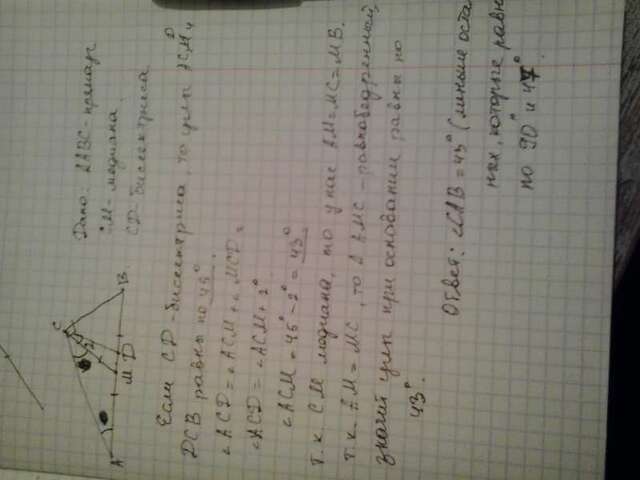 C
A
M D
B
2°
Дано: ΔABC - прямоуг
CM - медиана
CD - биссектриса
Если CD биссектриса, то углы ACD и
DCB равны по 45°.
∠ACD = ∠ACM + ∠MCD =
∠ACD = ∠ACM + 2°
∠ACM = 45° - 2° = 43°
Т.к. CM медиана, то у нас AM = MC = MB.
Т.к. AM = MC, то Δ AMC - равнобедренный,
значит углы при основании равны по
43°.
Ответ: ∠CAB = 43° (
которые равн
по 90° и 47°